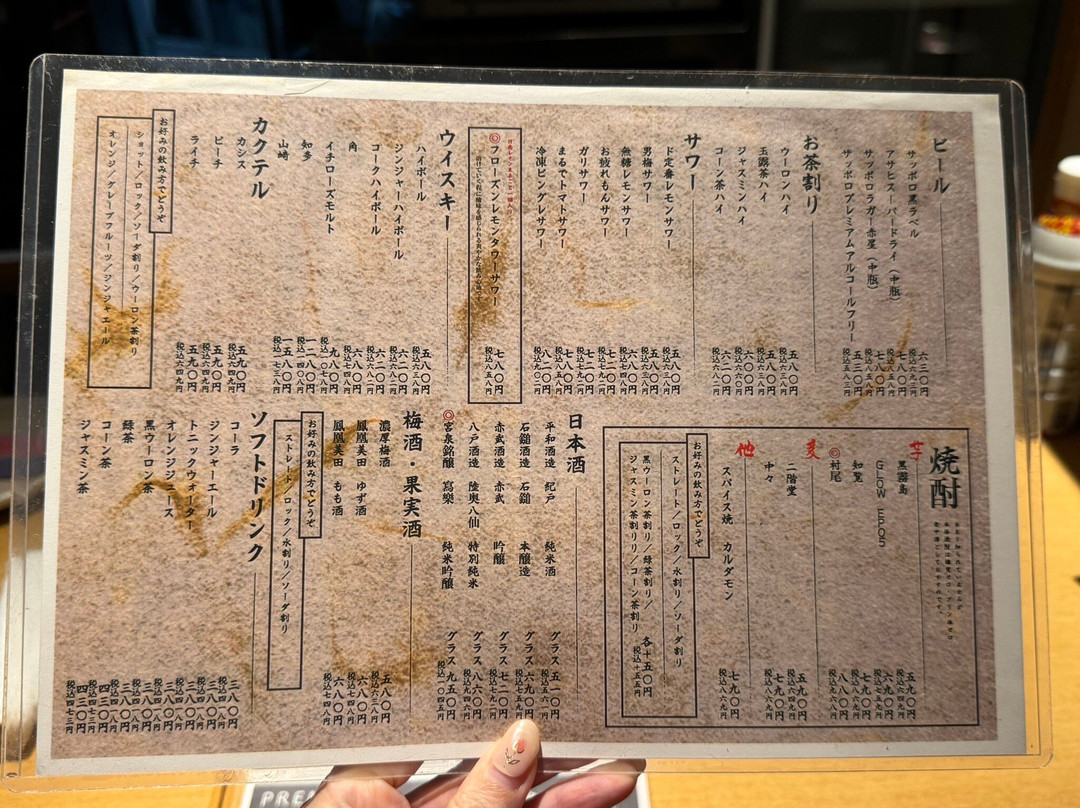 ビール
サッポロ黒ラベル 六三〇円 税込六九三円
アサヒスーパードライ(中瓶) 七八〇円
サッポロラガー赤星(中瓶) 七八〇円
サッポロプレミアムアルコールフリー 五三〇円 税込五八三円
お茶割り
ウーロンハイ 五八〇円 税込六三八円
玉露茶ハイ 五八〇円 税込六三八円
ジャスミンハイ 六二〇円 税込六八二円
コーン茶ハイ 六二〇円 税込六八二円
サワー
ド定番レモンサワー 五八〇円 税込六三八円
男梅サワー 五五〇円
無糖レモンサワー 六二〇円
お疲れもんサワー 七二〇円
ガリサワー
まるでトマトサワー 七八〇円 税込八五八円
冷凍ピングレサワー 八二〇円
◎フローズンレモンタワーサワー 七八〇円 税込八五八円
ウイスキー
ハイボール 五八〇円 税込六三八円
ジンジャーハイボール 六二〇円 税込六八二円
コークハイボール 六二〇円 税込六八二円
角 六八〇円
イチローズモルト 九八〇円 税込一〇七八円
知多 一二八〇円 税込一四〇八円
山崎 一五八〇円 税込一七三八円
カクテル
カシス 五九〇円 税込六四九円
ピーチ 五九〇円 税込六四九円
ライチ 五九〇円 税込六四九円
お好みの飲み方でどうぞ
ショット/ロック/ソーダ割り/ウーロン茶割り
オレンジ/グレープフルーツ/ジンジャエール
焼酎
芋
黒霧島 五九〇円 税込六四九円
GLOW EP05 六九〇円
知覧 七九〇円
◎村尾 八八〇円
麦
二階堂 五九〇円 税込六四九円
中々 七九〇円 税込八六九円
他
スパイス焼 カルダモン 七九〇円 税込八六九円
お好みの飲み方でどうぞ
ストレート/ロック/水割り/ソーダ割り
黒ウーロン茶割り/緑茶割り/
ジャスミン茶割り/コーン茶割り
各+五〇円
税込+五五円
日本酒
平和酒造 紀戸 純米酒 グラス 五一〇円 税込五六一円
石鎚酒造 石鎚 本醸造 グラス 六九〇円 税込七五九円
赤武酒造 赤武 吟醸 グラス
八戸酒造 陸奥八仙 特別純米 グラス 八六〇円 税込九四六円
◎宮泉銘醸 寫樂 純米吟醸 グラス 九五〇円 税込一〇四五円
梅酒・果実酒
濃厚梅酒 五八〇円 税込六三八円
鳳凰美田 ゆず酒 六八〇円 税込七四八円
鳳凰美田 もも酒 六八〇円 税込七四八円
お好みの飲み方でどうぞ
ストレート/ロック/水割り/ソーダ割り
ソフトドリンク
コーラ 三八〇円 税込四一八円
ジンジャエール 三八〇円 税込四一八円
トニックウォーター 三八〇円 税込四一八円
オレンジジュース 三八〇円 税込四一八円
黒ウーロン茶 三八〇円 税込四一八円
緑茶 三八〇円 税込四一八円
コーン茶 四三〇円 税込四七三円
ジャスミン茶 四三〇円 税込四七三円